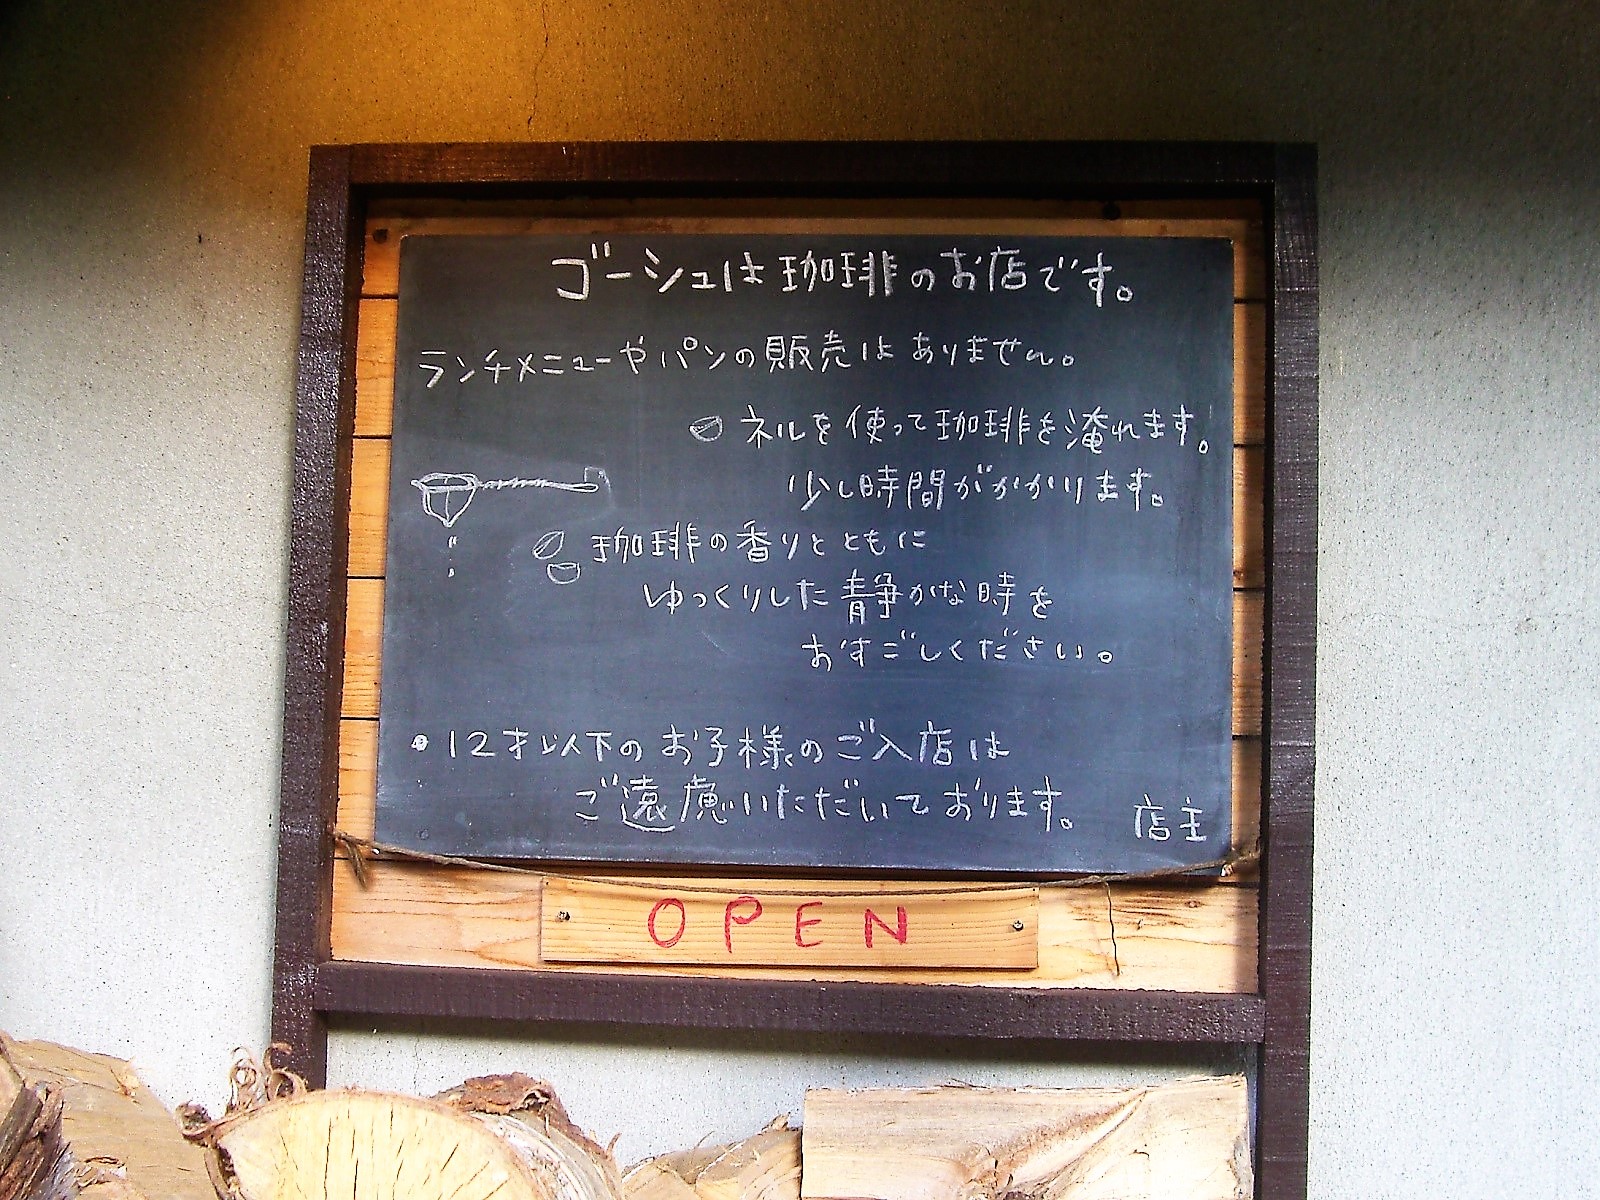 ゴーシュは珈琲のお店です。
ランチメニューやパンの販売はありません。
ネルを使って珈琲を淹れます。
少し時間がかかります。
珈琲の香りとともに
ゆっくりした静かな時を
おすごしください。
・12才以下のお子様のご入店は
ご遠慮いただいております。 店主
OPEN